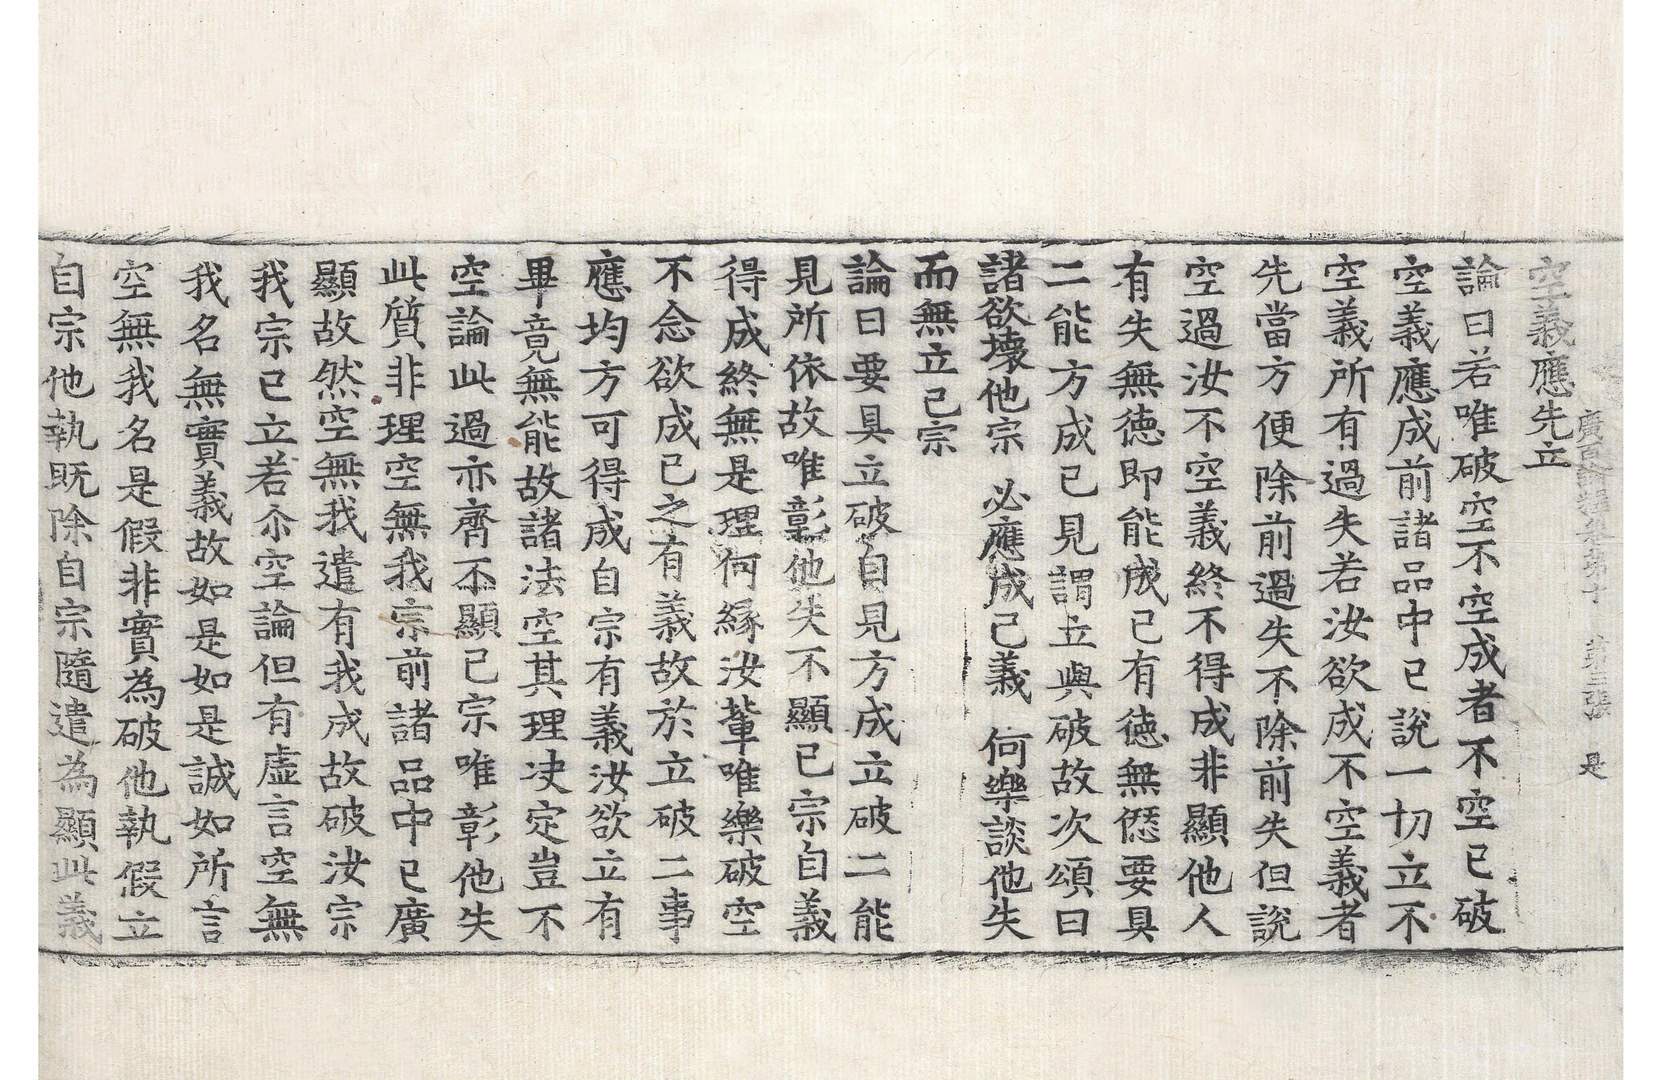 廣百論釋卷第十 第三張 是
空義應先立
論曰若唯破空不空成者不空已破
空義應成前諸品中已說一切立不
空義所有過失若汝欲成不空義者
先當方便除前過失不除前失但說
空過汝不空義終不得成非顯他人
有失無德即能成已有德無愆要具
二能方成已見謂立與破故次頌曰
諸欲壞他宗 必應成己義 何樂談他失
而無立己宗
論曰要具立破自見方成立破二能
見所依故唯彰他失不顯已宗自義
得成終無是理何緣汝輩唯樂破空
不念欲成已之有義故於立破二事
應均方可得成自宗有義汝欲立有
畢竟無能故諸法空其理决定豈不
空論此過亦齊不顯已宗唯彰他失
此質非理空無我宗前諸品中已廣
顯故然空無我遣有我成故破汝宗
我宗已立若尒空論但有虛言空無
我名無實義故如是如是誠如所言
空無我名是假非實為破他執假立
自宗他執既除自宗隨遣為顯此義